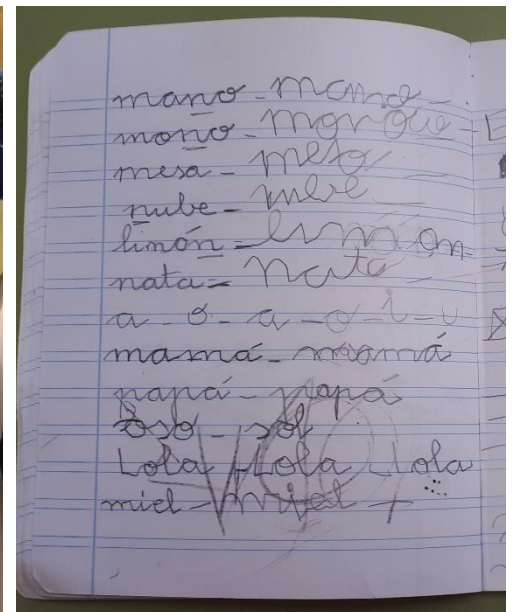 mano - mano -
moño -
mesa - mesa
nube -
limón = limon
nata = Nata
a - o - a - o - i - u
mamá - mamá
papá - papá
oso - sol
Lola - Lola - Lola
miel - miel -